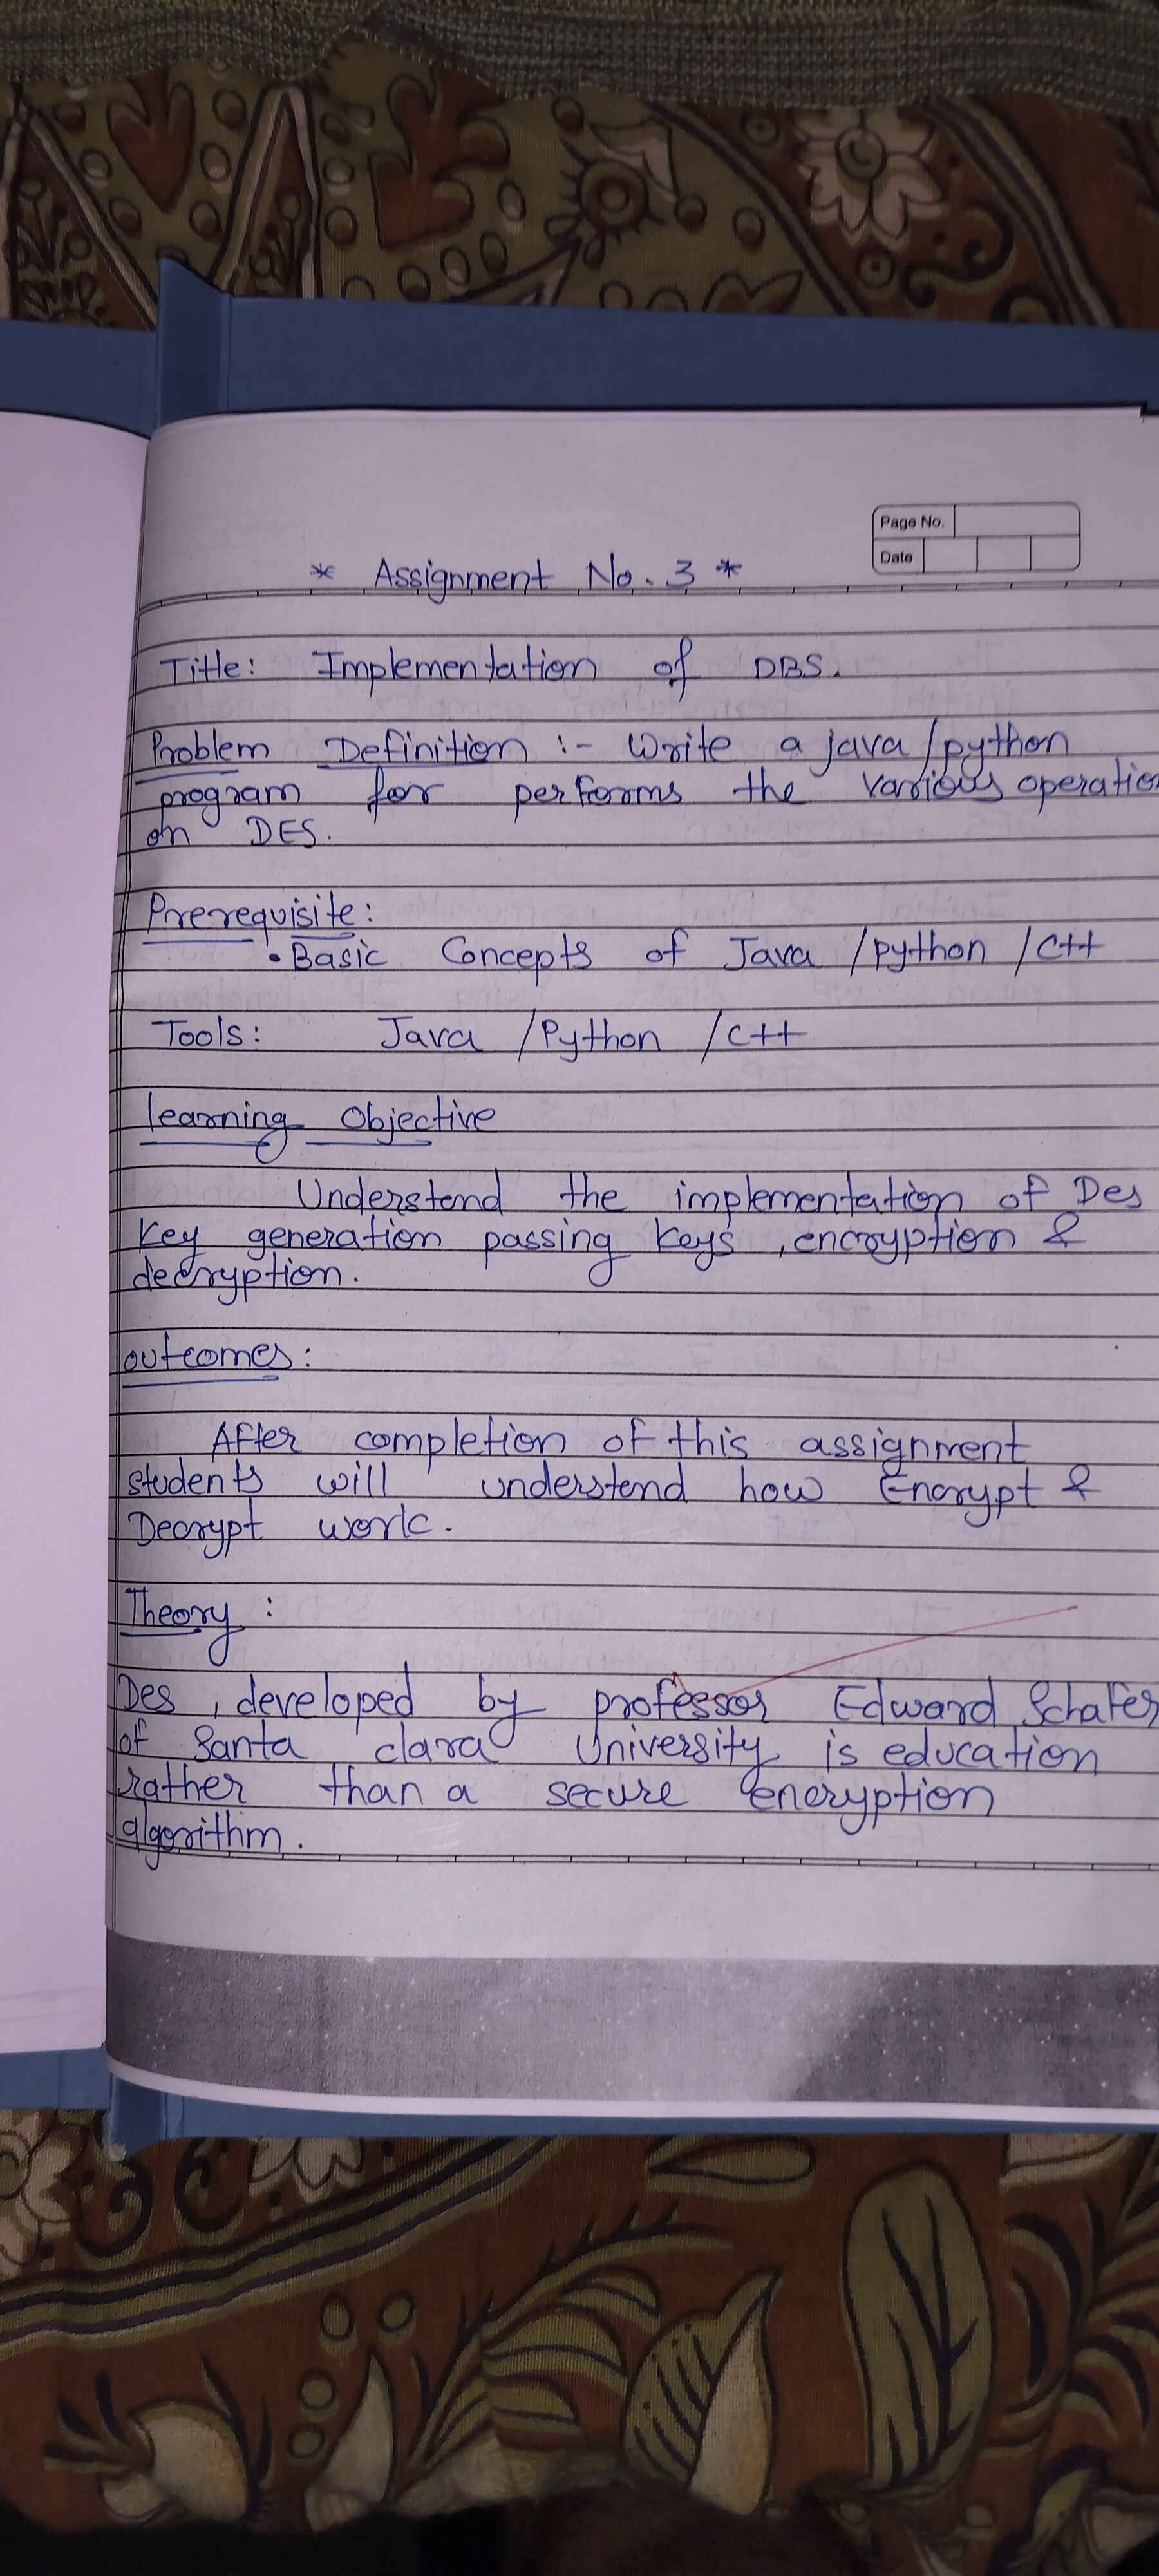 Page No.
Date
* Assignment No. 3 *
Title: Implementation of DBS.
Problem Definition :- Write a java/python
program for performs the various operatio
on DES.
Prerequisite:
• Basic Concepts of Java /python /C++
Tools: Java /Python /C++
learning Objective
Understend the implementation of Des
Key generation passing keys , encryption &
decryption.
outcomes:
After completion of this assignment
students will understend how Encrypt &
Decrypt work.
Theory :
Des , developed by professor Edward Schafer
of Santa clara University is education
rather than a secure encryption
algorithm.